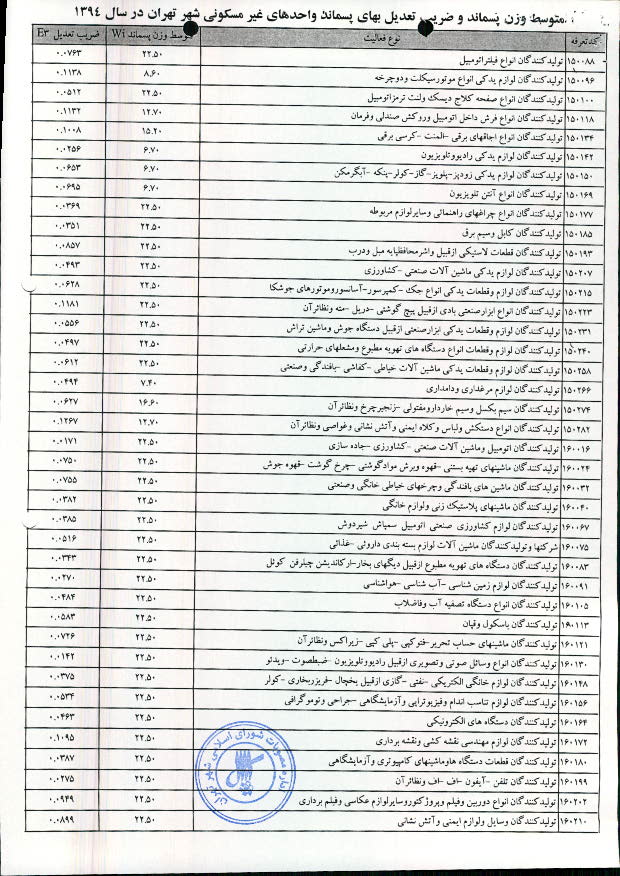 متوسط وزن پسماند و ضریب تعدیل بهای پسماند واحدهای غیر مسکونی شهر تهران در سال ۱۳۹٤
کدتعرفه نوع فعالیت متوسط وزن پسماند Wi ضریب تعدیل E۳
۱۵۰۰۸۸ تولیدکنندگان انواع فیلتراتومبیل ۲۲.۵۰ ۰.۰۷۶۳
۱۵۰۰۹۶ تولیدکنندگان لوازم یدکی انواع موتورسیکلت ودوچرخه ۸.۶۰ ۰.۱۱۳۸
۱۵۰۱۰۰ تولیدکنندگان انواع صفحه کلاج دیسک ولنت ترمزاتومبیل ۲۲.۵۰ ۰.۰۵۱۲
۱۵۰۱۱۸ تولیدکنندگان انواع فرش داخل اتومبیل وروکش صندلی وفرمان ۱۲.۷۰ ۰.۱۱۳۲
۱۵۰۱۳۴ تولیدکنندگان انواع اجاقهای برقی -المنت -کرسی برقی ۱۵.۲۰ ۰.۱۰۰۸
۱۵۰۱۴۲ تولیدکنندگان لوازم یدکی رادیووتلویزیون ۶.۷۰ ۰.۰۲۵۶
۱۵۰۱۵۰ تولیدکنندگان لوازم یدکی زودپز-پلوپز-گاز-کولر-پنکه -آبگرمکن ۶.۷۰ ۰.۰۶۵۳
۱۵۰۱۶۹ تولیدکنندگان انواع آنتن تلویزیون ۶.۷۰ ۰.۰۶۹۵
۱۵۰۱۷۷ تولیدکنندگان انواع چراغهای راهنمائی وسایرلوازم مربوطه ۲۲.۵۰ ۰.۰۳۶۹
۱۵۰۱۸۵ تولیدکنندگان کابل وسیم برق ۲۲.۵۰ ۰.۰۳۵۱
۱۵۰۱۹۳ تولیدکنندگان قطعات لاستیکی ازقبیل واشرمحافظپایه مبل ودرب ۲۲.۵۰ ۰.۰۸۵۷
۱۵۰۲۰۷ تولیدکنندگان لوازم یدکی ماشین آلات صنعتی -کشاورزی ۲۲.۵۰ ۰.۰۴۹۳
۱۵۰۲۱۵ تولیدکنندگان لوازم وقطعات یدکی انواع جک -کمپرسور-آسانسوروموتورهای جوشکا ۲۲.۵۰ ۰.۰۶۲۸
۱۵۰۲۲۳ تولیدکنندگان انواع ابزارصنعتی بادی ازقبیل پیچ گوشتی -دریل -مته ونظائرآن ۲۲.۵۰ ۰.۱۱۸۱
۱۵۰۲۳۱ تولیدکنندگان لوازم وقطعات یدکی ابزارصنعتی ازقبیل دستگاه جوش وماشین تراش ۲۲.۵۰ ۰.۰۵۵۶
۱۵۰۲۴۰ تولیدکنندگان لوازم وقطعات انواع دستگاه های تهویه مطبوع ومشعلهای حرارتی ۲۲.۵۰ ۰.۰۴۹۷
۱۵۰۲۵۸ تولیدکنندگان لوازم وقطعات یدکی ماشین آلات خیاطی -کفاشی -بافندگی وصنعتی ۲۲.۵۰ ۰.۰۶۱۲
۱۵۰۲۶۶ تولیدکنندگان لوازم مرغداری ودامداری ۷.۴۰ ۰.۰۴۹۴
۱۵۰۲۷۴ تولیدکنندگان سیم بکسل وسیم خاردارومفتولی -زنجیرچرخ ونظائرآن ۱۶.۶۰ ۰.۰۶۲۷
۱۵۰۲۸۲ تولیدکنندگان انواع دستکش ولباس وکلاه ایمنی وآتش نشانی وغواصی ونظائرآن ۱۲.۷۰ ۰.۱۲۶۷
۱۶۰۰۱۶ تولیدکنندگان اتومبیل وماشین آلات صنعتی -کشاورزی -جاده سازی ۲۲.۵۰ ۰.۰۱۷۱
۱۶۰۰۲۴ تولیدکنندگان ماشینهای تهیه بستنی -قهوه وبرش موادگوشتی -چرخ گوشت -قهوه جوش ۲۲.۵۰ ۰.۰۷۵۰
۱۶۰۰۳۲ تولیدکنندگان ماشین های بافندگی وچرخهای خیاطی خانگی وصنعتی ۲۲.۵۰ ۰.۰۷۵۵
۱۶۰۰۴۰ تولیدکنندگان ماشینهای پلاستیک زنی ولوازم خانگی ۲۲.۵۰ ۰.۰۳۸۲
۱۶۰۰۶۷ تولیدکنندگان لوازم کشاورزی صنعتی اتومبیل سمپاش شیردوش ۲۲.۵۰ ۰.۰۳۸۵
۱۶۰۰۷۵ شرکتها وتولیدکنندگان ماشین آلات لوازم بسته بندی داروئی -غذائی ۲۲.۵۰ ۰.۰۵۱۶
۱۶۰۰۸۳ تولیدکنندگان دستگاه های تهویه مطبوع ازقبیل دیگهای بخار-ارکاندیشن چیلرفن کوئل ۲۲.۵۰ ۰.۰۳۴۳
۱۶۰۰۹۱ تولیدکنندگان لوازم زمین شناسی -آب شناسی -هواشناسی ۲۲.۵۰ ۰.۰۲۷۰
۱۶۰۱۰۵ تولیدکنندگان انواع دستگاه تصفیه آب وفاضلاب ۲۲.۵۰ ۰.۰۴۸۴
۱۶۰۱۱۳ تولیدکنندگان باسکول وقپان ۲۲.۵۰ ۰.۰۵۸۳
۱۶۰۱۲۱ تولیدکنندگان ماشینهای حساب تحریر-فتوکپی -پلی کپی -زیراکس ونظائرآن ۲۲.۵۰ ۰.۰۷۲۶
۱۶۰۱۳۰ تولیدکنندگان انواع وسائل صوتی وتصویری ازقبیل رادیووتلویزیون -ضبطصوت -ویدئو ۲۲.۵۰ ۰.۰۱۴۲
۱۶۰۱۴۸ تولیدکنندگان لوازم خانگی الکتریکی -نفتی -گازی ازقبیل یخچال -فریزربخاری -کولر ۲۲.۵۰ ۰.۰۳۷۵
۱۶۰۱۵۶ تولیدکنندگان لوازم تناسب اندام وفیزیوتراپی وآزمایشگاهی -جراحی وتوموگرافی ۲۲.۵۰ ۰.۰۵۳۴
۱۶۰۱۶۴ تولیدکنندگان دستگاه های الکترونیکی ۲۲.۵۰ ۰.۰۴۶۳
۱۶۰۱۷۲ تولیدکنندگان لوازم مهندسی نقشه کشی ونقشه برداری ۲۲.۵۰ ۰.۱۰۹۵
۱۶۰۱۸۰ تولیدکنندگان قطعات دستگاه هاوماشینهای کامپیوتری وآزمایشگاهی ۲۲.۵۰ ۰.۰۳۸۷
۱۶۰۱۹۹ تولیدکنندگان تلفن -آیفون -اف -اف ونظائرآن ۲۲.۵۰ ۰.۰۲۷۵
۱۶۰۲۰۲ تولیدکنندگان انواع دوربین وفیلم وپروژکتوروسایرلوازم عکاسی وفیلم برداری ۲۲.۵۰ ۰.۰۹۴۹
۱۶۰۲۱۰ تولیدکنندگان وسایل ولوازم ایمنی وآتش نشانی ۲۲.۵۰ ۰.۰۸۹۹
اداره مصوبات شورای اسلامی شهر تهران